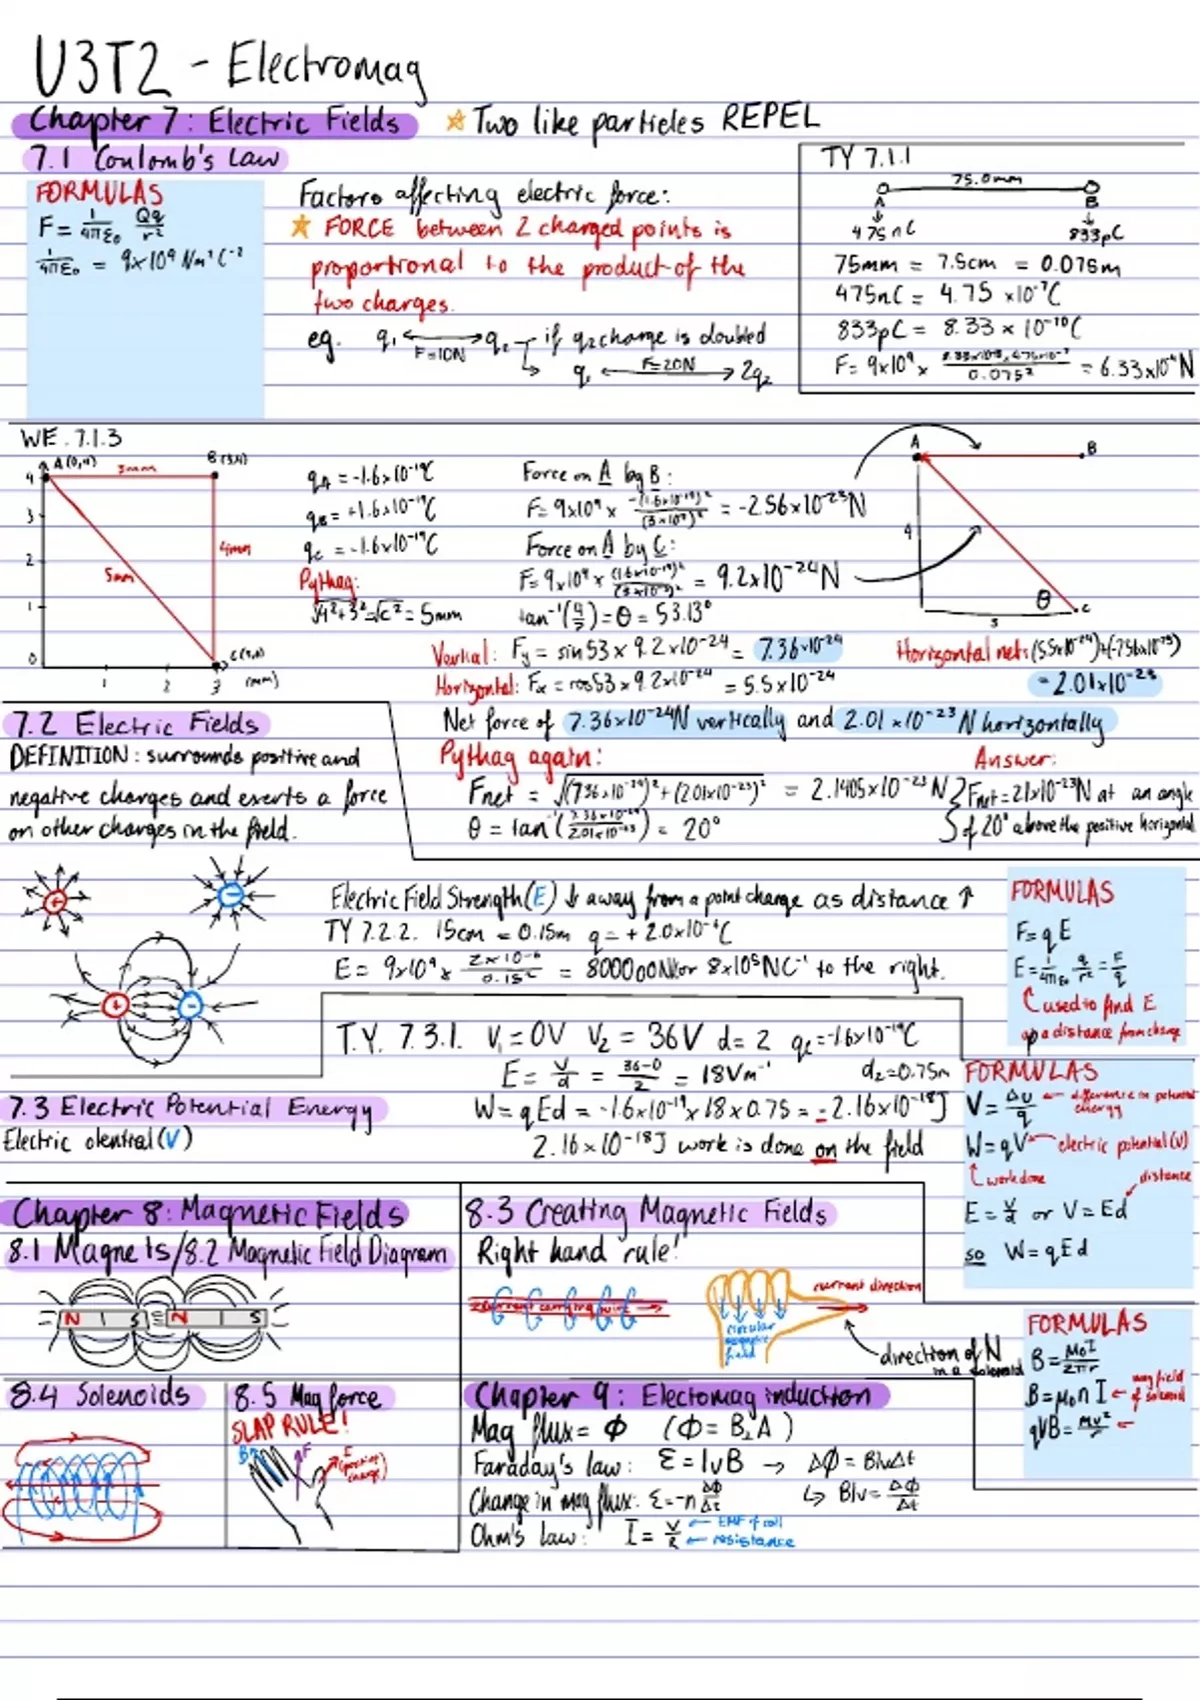 U3T2 - Electromag
Chapter 7: Electric Fields ☆ Two like particles REPEL
7.1 Coulomb's Law
FORMULAS
F = 1/4πε₀ Qq/r²
1/4πε₀ = 9x10⁹ Nm²C⁻²
Factors affecting electric force:
☆ FORCE between 2 charged points is
proportional to the product of the
two charges.
eg. q₁ ⟷ q₂ → if q₂ charge is doubled
F=10N
q₁ ⟷ 2q₂
F=20N
TY 7.1.1
75.0mm
A B
475nC 833pC
75mm = 7.5cm = 0.075m
475nC = 4.75 x10⁻⁷C
833pC = 8.33 x 10⁻¹⁰C
F= 9x10⁹ x 8.33x10⁻¹⁰x4.75x10⁻⁷/0.075² = 6.33x10⁻⁴N
WE. 7.1.3
A(0,4) 3mm B(3,4)
4
3
2
1
0
1 2 3 (mm)
5mm
4mm
qA = -1.6x10⁻¹⁹C
qB = +1.6x10⁻¹⁹C
qc = -1.6x10⁻¹⁹C
Pythag:
√4²+3²=√c²= 5mm
Force on A by B:
= -2.56x10⁻²³N
Force on A by C:
= 9.2x10⁻²⁴N
tan⁻¹(4/3)=θ = 53.13°
A B
4
θ C
3
Vertical: Fy = sin53 x 9.2x10⁻²⁴ = 7.36x10⁻²⁴
Horizontal: Fx = cos53 x 9.2x10⁻²⁴ = 5.5x10⁻²⁴
Horizontal net:
= -2.01x10⁻²³
Net force of 7.36x10⁻²⁴N vertically and 2.01 x10⁻²³N horizontally
Pythag again:
Fnet = √(7.36x10⁻²⁴)²+(2.01x10⁻²³)² = 2.1405x10⁻²³N
θ = tan⁻¹(7.36x10⁻²⁴/2.01x10⁻²³) = 20°
Answer:
Fnet = 21x10⁻²³N at an angle
of 20° above the positive horizontal
7.2 Electric Fields
DEFINITION: surrounds positive and
negative charges and exerts a force
on other charges in the field.
+ -
+ -
Electric Field Strength (E) ↓ away from a point charge as distance ↑
TY 7.2.2. 15cm = 0.15m q = +2.0x10⁻⁶C
E = 9x10⁹ x 2x10⁻⁶/0.15² = 800000 or 8x10⁵NC⁻¹ to the right.
FORMULAS
F=qE
E=1/4πε₀ q/r² = F/q
used to find E
a distance from charge
T.Y. 7.3.1. V₁=0V V₂ = 36V d= 2 qe=-1.6x10⁻¹⁹C
E = V/d = 36-0/2 = 18Vm⁻¹ d₂=0.75m
W= qEd = -1.6x10⁻¹⁹x18x0.75 = -2.16x10⁻¹⁸J
2.16x10⁻¹⁸J work is done on the field
7.3 Electric Potential Energy
Electric otential (V)
FORMULAS
V= ΔU/q ← difference in potential energy
W=qV ← electric potential (V)
work done
distance
E = V/d or V=Ed
so W=qEd
Chapter 8: Magnetic Fields
8.1 Magnets/8.2 Magnetic Field Diagram
N S N S
8.3 Creating Magnetic Fields
Right hand rule!
current carrying wire
current direction
circular magnetic field
direction of N
in a solenoid
FORMULAS
B= μ₀I/2πr
B=μ₀nI ← mag field of solenoid
qVB= mv²/r ←
8.4 Solenoids
8.5 Mag force
SLAP RULE!
B F I (positive charge)
Chapter 9: Electomag induction
Mag flux = Φ (Φ = B⊥A)
Faraday's law: ε=lvB → ΔΦ = BlvΔt
Change in mag flux: ε=-n ΔΦ/Δt ↳ Blv= ΔΦ/Δt
Ohm's Law: I = V/R ← EMF of coil
← resistance